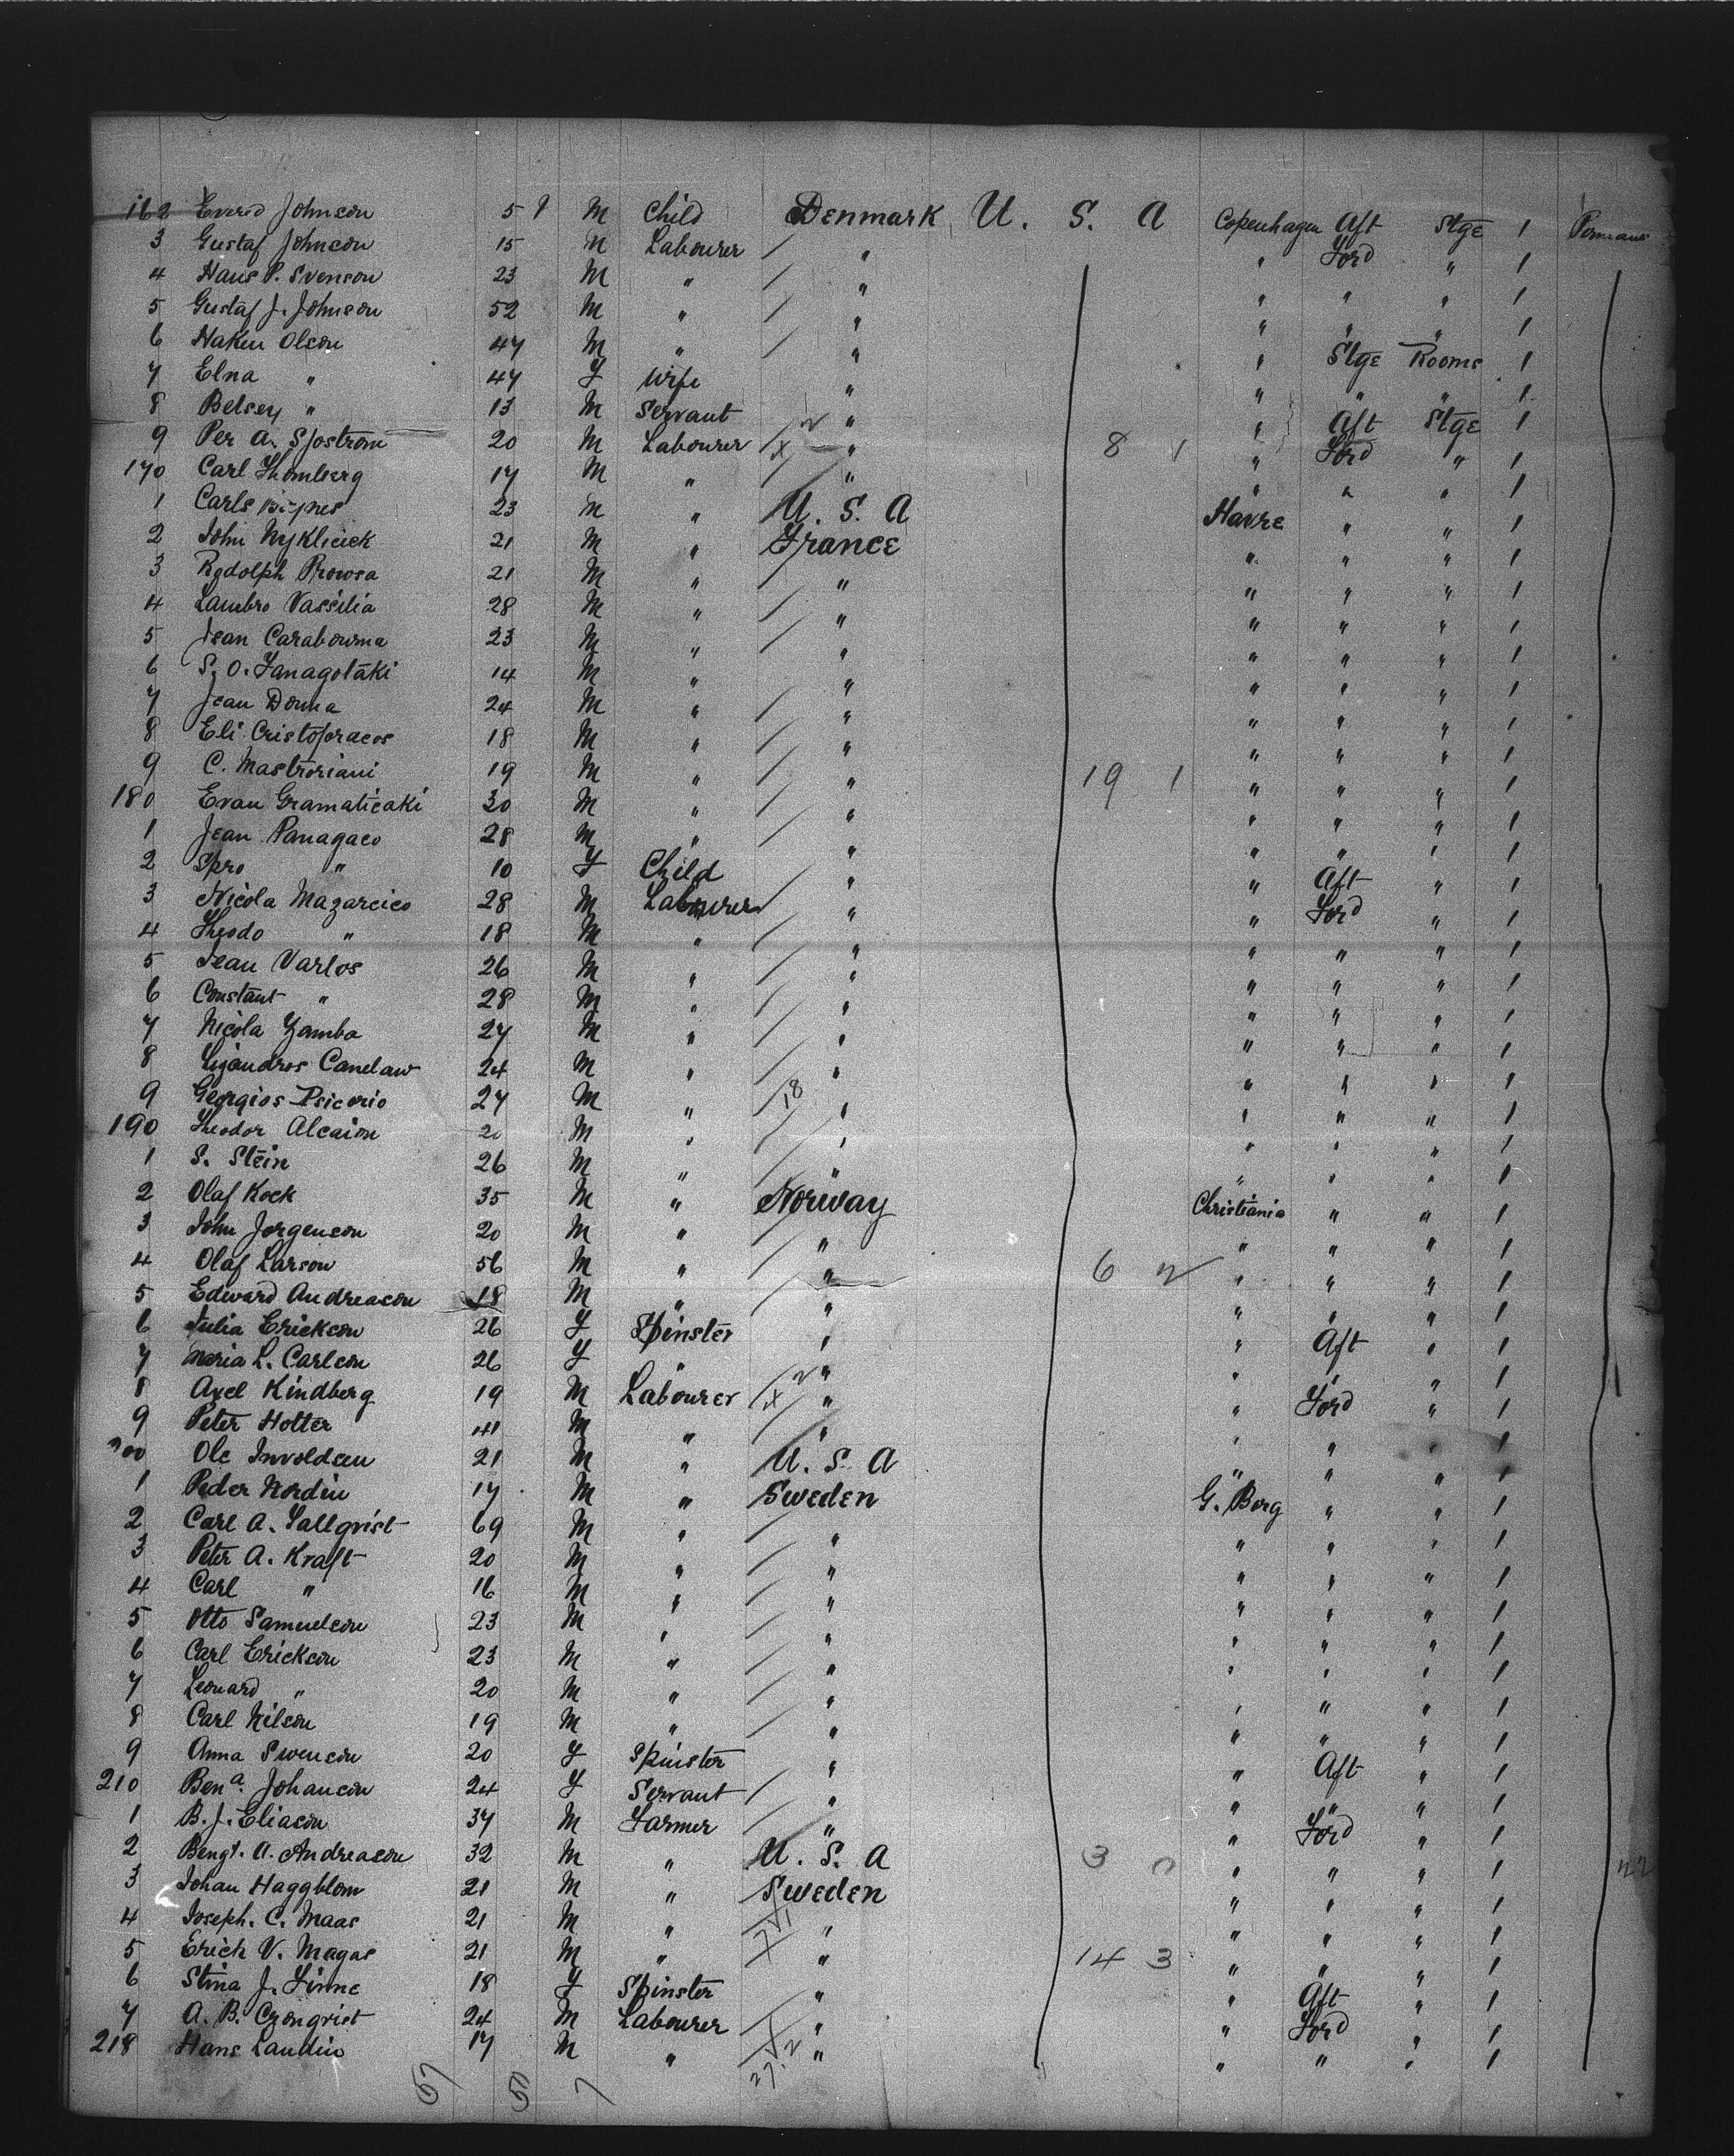 162 Evered Johnson 5 M Child Denmark U. S. A Copenhagen Aft Stge 1
3 Gustaf Johnson 15 M Labourer / " " Ford " 1
4 Hans P. Svenson 23 M " / " " " " 1
5 Gustaf J. Johnson 52 M " / " " " " 1
6 Haken Olson 47 M " / " " Stge Rooms 1
7 Elna " 47 F Wife " " " " 1
8 Betsey " 13 M Servant " " Aft Stge 1
9 Per A. Sjostrom 20 M Labourer / " 8 1 " Ford " 1
170 Carl 17 M " " " " " 1
1 Carls 23 M " U. S. A Havre " " 1
2 John Nyklicick 21 M " France " " " 1
3 Rodolph Prowsa 21 M " / " " " " 1
4 Lambro Vassilia 28 M " / " " " " 1
5 Jean Carabourna 23 M " / " " " " 1
6 S. O. Fanagotaki 14 M " " " " " 1
7 Jean Douna 24 M " / " " " " 1
8 Eli Cristoforacos 18 M " / " " " " 1
9 C. Mastroriani 19 M " / " 19 1 " " " 1
180 Evan Gramaticaki 30 M " / " " " " 1
1 Jean Panagaco 28 M " / " " " " 1
2 Spro " 10 F Child " " Aft " 1
3 Nicola Mazarcico 28 M Labourer / " " Ford " 1
4 Theodo " 18 M " / " " " " 1
5 Jean Varlos 26 M " / " " " " 1
6 Constant " 28 M " / " " " " 1
7 Nicola Zamba 27 M " / " " " " 1
8 Canelaw 24 M " / " " " " 1
9 Georgios Psicorio 27 M " / 18 " " " " 1
190 Theodor Alcaion 20 M " / " " " " 1
1 S. Stein 26 M " / " " " " 1
2 Olaf Kock 35 M " Norway Christiania " " 1
3 John Jorgenson 20 M " / " " " " 1
4 Olaf Larson 56 M " / " 6 2 " " " 1
5 Edward Andreason 18 M " / " " " " 1
6 Julia Erickson 26 F Spinster " " Aft " 1
7 Maria L. Carlson 26 F " " " " " 1
8 Axel Kindberg 19 M Labourer / " " Ford " 1
9 Peter Hotter 41 M " " " " " 1
200 Ole Involdsen 21 M " U. S. A " " " 1
1 Peder Nordin 17 M " Sweden G. Borg " " 1
2 Carl A. Sallqvist 69 M " / " " " " 1
3 Peter A. Kraft 20 M " / " " " " 1
4 Carl " 16 M " / " " " " 1
5 Otto Samuelson 23 M " / " " " " 1
6 Carl Erickson 23 M " / " " " " 1
7 Leonard " 20 M " / " " " " 1
8 Carl Nilson 19 M " / " " " " 1
9 Anna Swenson 20 F Spinster " " Aft " 1
210 Bena. Johanson 24 F Servant / " " " " 1
1 B. J. Eliason 37 M Farmer / " " Ford " 1
2 Bengt. A. Andreason 32 M " U. S. A 3 0 " " " 1
3 Johan Haggblom 21 M " Sweden " " " 1
4 Joseph. C. Maas 21 M " " " " " 1
5 Erich V. Magas 21 M " " 14 3 " " " 1
6 Stina J. Finne 18 F Spinster " " Aft " 1
7 A. B. Cronqvist 24 M Labourer / " " Ford " 1
218 Hans Laudin 17 M " " " " " 1